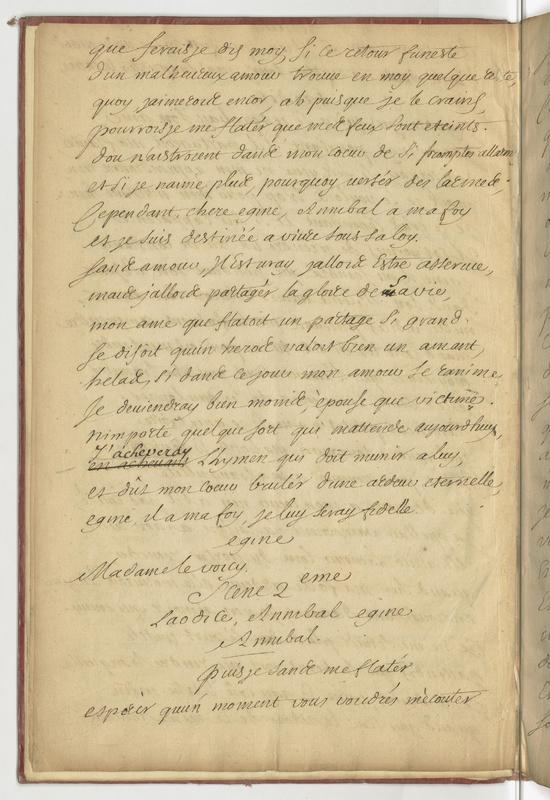 que ferais je dis moy, si ce retour funeste
d'un malheureux amour trouve en moy quelque reste,
quoy jaimerois encor, ah puisque je le crains
pourrois je me flatér que mes feux sont eteints.
dou naistroient dans mon coeur de si promptes allarmes
et si je naime plus, pourquoy versér des larmes,
Cependant, chere egine, Annibal a ma foy
et je suis destinée a vivre sous sa loy.
sans amour, il est vray, jallois estre asservie,
mais jallois partagér la gloire de sa vie,
mon ame que flatoit un partage si grand
se disoit quun heros valoit bien un amant,
helas, si dans ce jour mon amour se ranime
je deviendray bien moins épouse que victime.
nimporte quelque sort qui mattende aujourdhuy,
J'acheveray
en achevant l'hymen qui doit munir a luy,
et dût mon coeur brulér dune ardeur eternelle,
egine, il a ma foy, je luy seray fidelle
egine
Madame le voicy.
Scene 2 eme
Laodice, Annibal egine
Annibal.
puis je sans me flatér
espérer quun moment vous voudrés mécouter